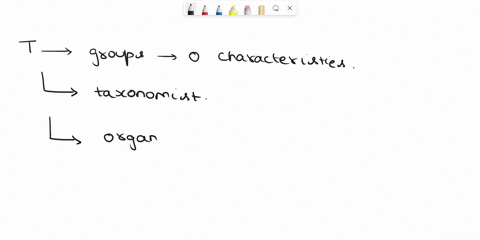 T → groups → O characteristics.
taxonomist.
organ